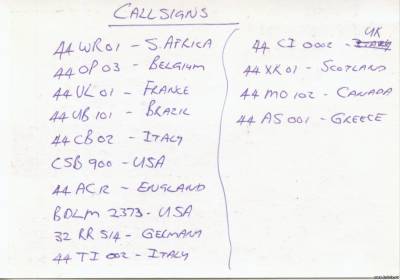 CALLSIGNS
44 WR01 - S. AFRICA
44 OP 03 - BELGIUM
44 UL 01 - FRANCE
44 UB 101 - BRAZIL
44 CB 02 - ITALY
CSB 900 - USA
44 AC 12 - ENGLAND
BDLM 2373 - USA
32 RR 514 - GERMANY
44 TI 002 - ITALY
44 CI 0002 - UK
44 XR 01 - SCOTLAND
44 MO 102 - CANADA
44 AS 001 - GREECE